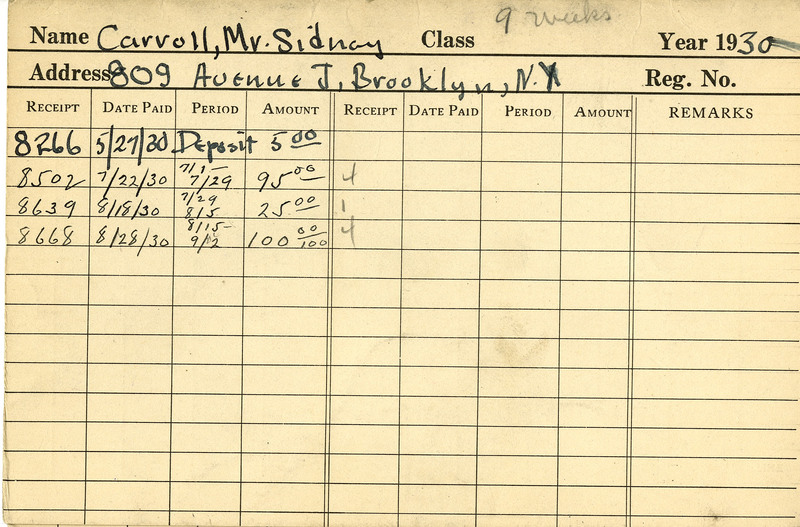 9 weeks
Name Carroll, Mr. Sidney Class Year 1930
Address 809 Avenue J, Brooklyn, N.Y Reg. No.
RECEIPT DATE PAID PERIOD AMOUNT RECEIPT DATE PAID PERIOD AMOUNT REMARKS
8266 5/27/30 Deposit 5 00
8502 7/22/30 7/1- 7/29 95 00 4
8639 8/18/30 7/29 8/5 25 00 1
8668 8/28/30 8/15- 9/2 100 00/100 4